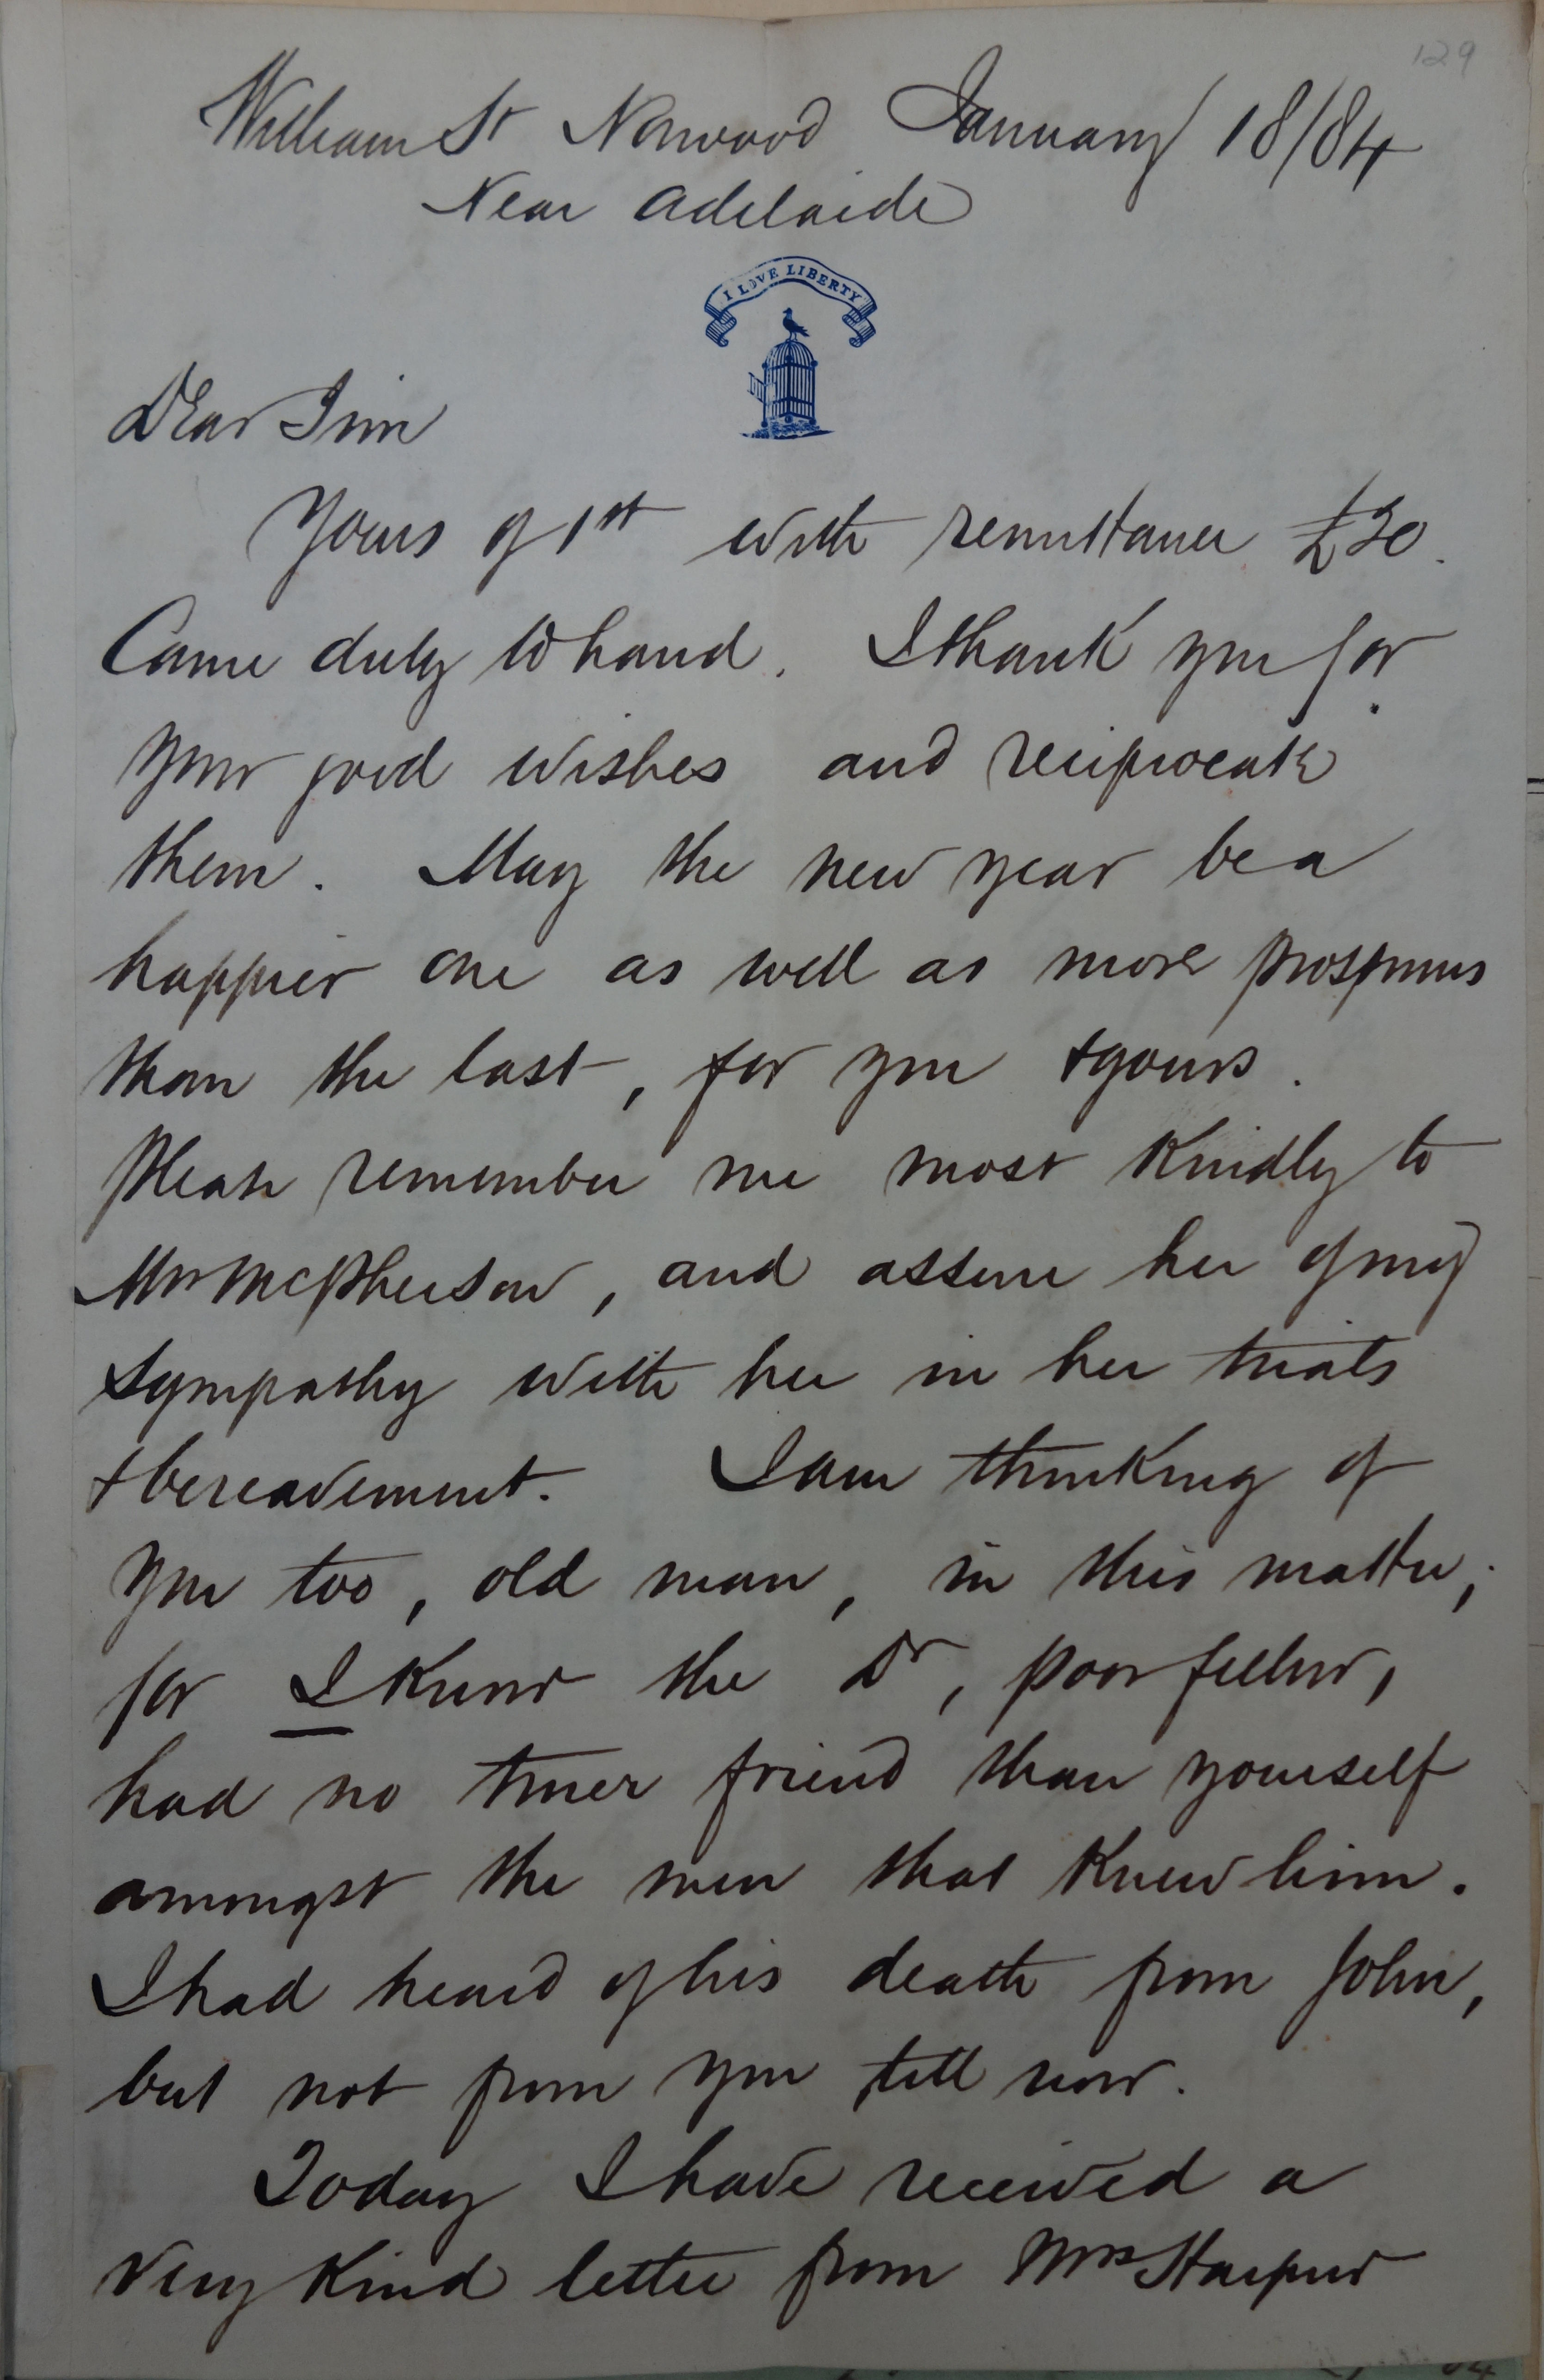 129
William St Norwood January 18/84
Near Adelaide
I LOVE LIBERTY
Dear Jim
Yours of 1st with remittance £30.
Came duly to hand. I thank you for
your good wishes and reciprocate
them. May the new year be a
happier one as well as more prosperous
than the last, for you & yours.
Please remember me most kindly to
Mrs McPherson, and assure her of my
sympathy with her in her trials
& bereavement. I am thinking of
you too, old man, in this matter;
for I know the Dr, poor fellow,
had no truer friend than yourself
amongst the men that knew him.
I had heard of his death from John,
but not from you till now.
Today I have received a
very kind letter from Mrs Harpur